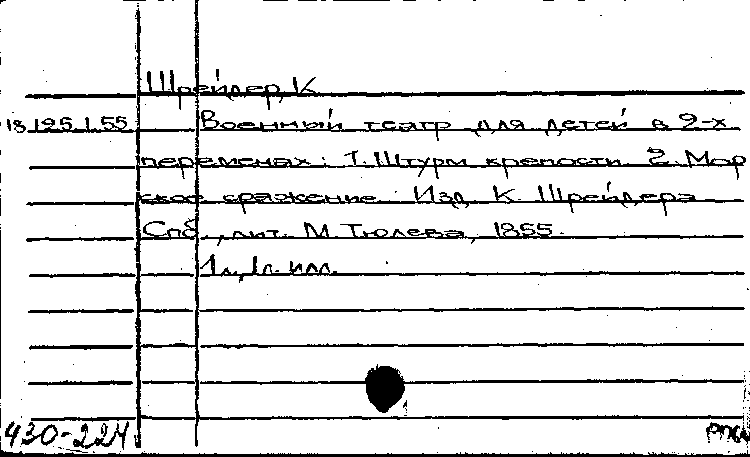 Шрейдер, К
18.195.1.55
Военный театр для детей в 2-х
переменах: 1. Штурм крепости. 2. Мор
ское сражение. Изд. К. Шрейдера
Спб., лит. М. Тюлева, 1855.
1л., 1л. илл.
430-224